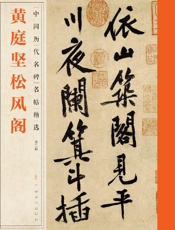 中国历代名碑名帖精选
黄庭坚松风阁
依山築閣見平
川夜闌箕斗插